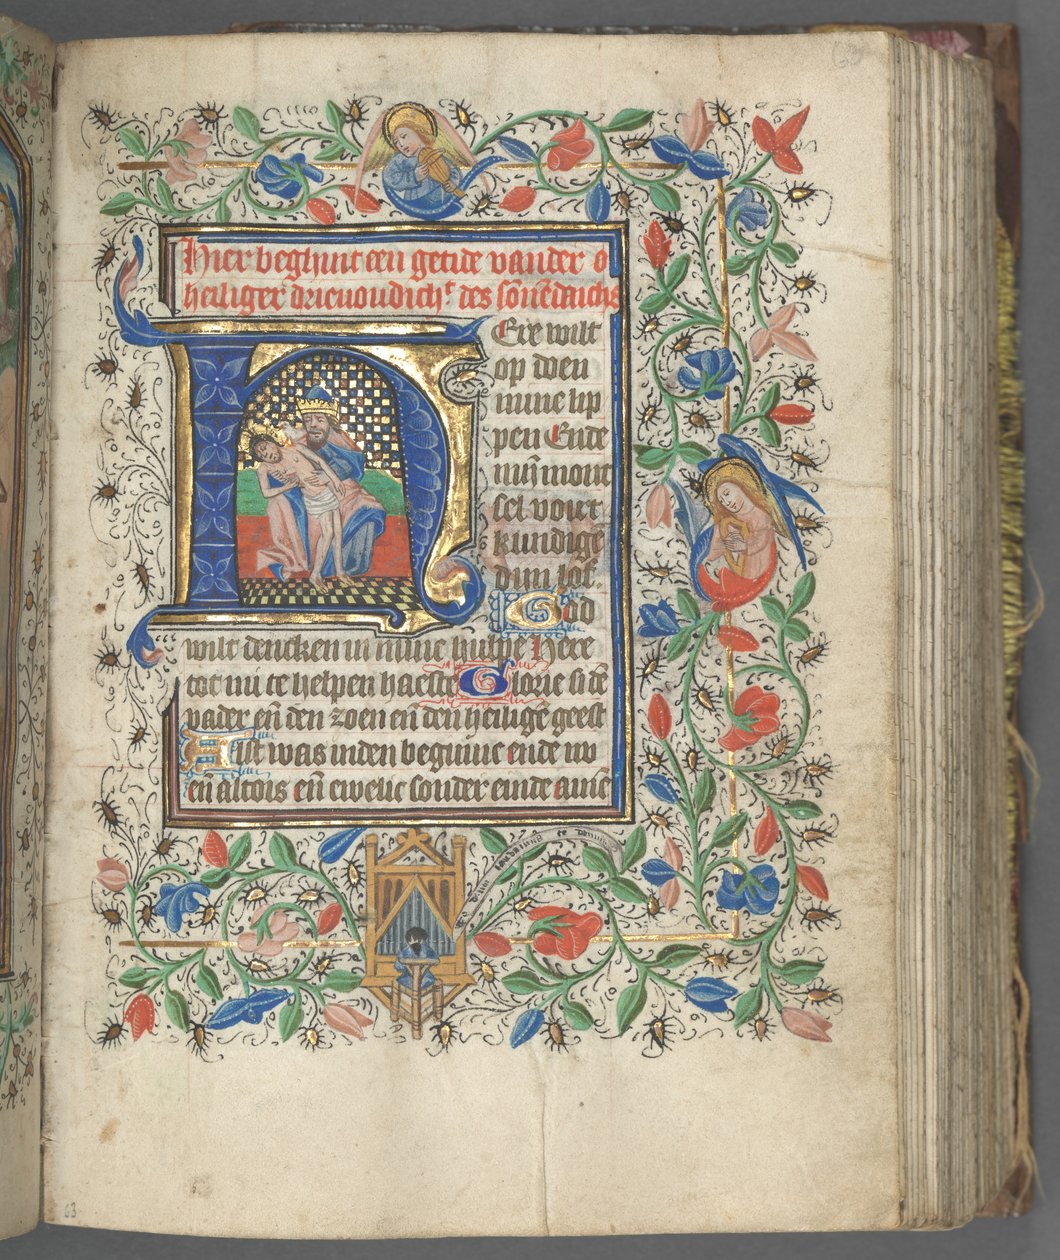 Hier beghint een getide vander
heiliger drievoudich^t des sonēdaichs
HEre wilt
op doen
mine lip
pen Ende
mijn mont
sel voer
kundigē
dijn lof.
God
wilt dencken in mine hulpe Here
tot mi te helpen haeste Glorie si dē
vader eñ den zoen eñ den heiligē geest
Alst was inden beginne ende nv
eñ altois eñ ewelic sonder einde amē
te deum laudamus te dominū
63